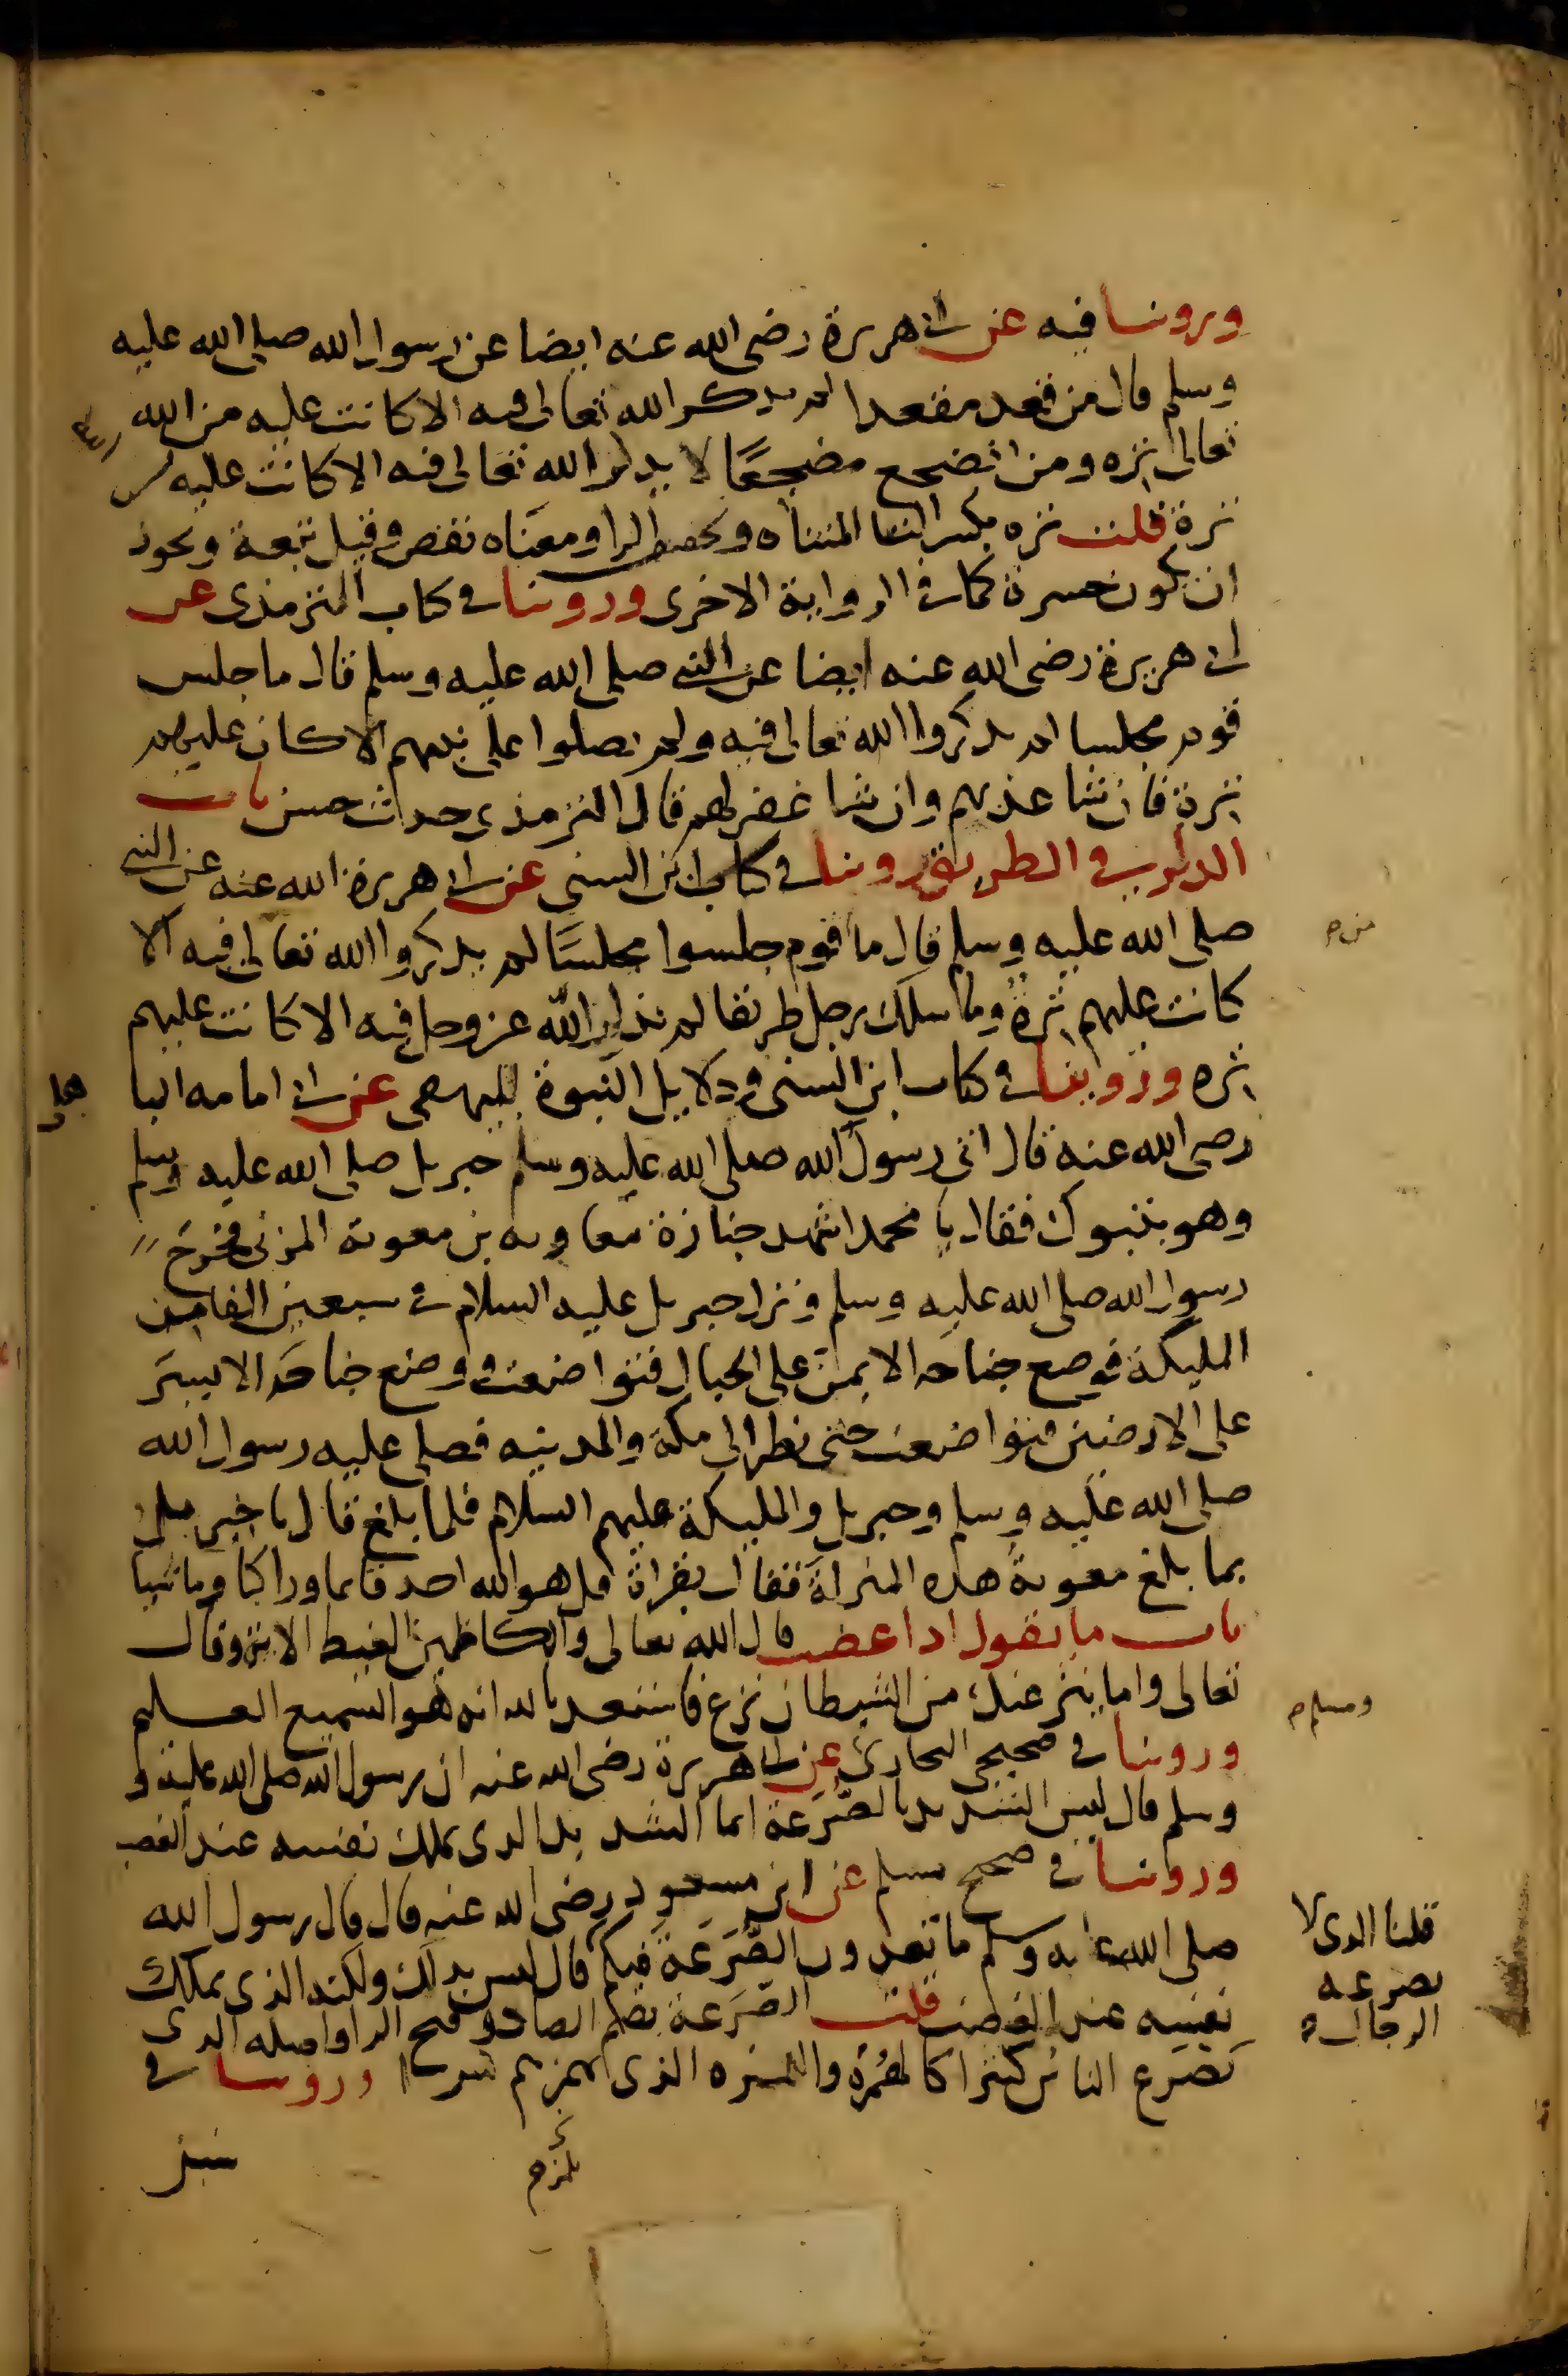 وروينا فيه عن ابي هريرة رضي الله عنه ايضا عن رسول الله صلى الله عليه
وسلم قال من قعد مقعدا لم يذكر الله تعالى فيه الا كانت عليه من الله
تعالى ترة ومن اضجع مضجعًا لا يذكر الله تعالى فيه الا كانت عليه من الله
ترة قلت ترة بكسر التا المثناة وتخفيف الرا ومعناه نقص وقيل تبعة ويجوز
ان يكون حسرة كما في الرواية الاخرى وروينا في كتاب الترمذي عن
ابي هريرة رضي الله عنه ايضا عن النبي صلى الله عليه وسلم قال ما جلس
قوم مجلسا لم يذكروا الله تعالى فيه ولم يصلوا على نبيهم الا كان عليهم
ترة فان شا عذبهم وان شا غفر لهم قال الترمذي حديث حسن باب
الذكر في الطريق روينا في كتاب ابن السني عن ابي هريرة الله عنه عن النبي
صلى الله عليه وسلم قال ما قوم جلسوا مجلسًا لم يذكروا الله تعالى فيه الا
كانت عليهم ترة وما سلك رجل طريقا لم يذكر الله عز وجل فيه الا كانت عليهم
ترة وروينا في كتاب ابن السني ودلايل النبوة للبيهقي عن ابي امامه البا
هلي
رضي الله عنه قال اتى رسول الله صلى الله عليه وسلم جبريل صلى الله عليه وسلم
وهو بتبوك فقال يا محمد اشهد جنازة معاويه بن معوية المزني فخرج
رسول الله صلى الله عليه وسلم ونزل جبريل عليه السلام في سبعين الفا من
المليكة فوضع جناحه الايمن على الجبال فتواضعت ووضع جناحه الايسر
على الارضين فتواضعت حتى نظر الى مكة والمدينه فصلى عليه رسول الله
صلى الله عليه وسلم وجبريل والمليكة عليهم السلام فلما بلغ قال يا جبريل
بما بلغ معوية هذه المنزلة فقال بقراة قل هو الله احد قايما وراكبا وماشيا
باب ما يقول اذا غضب قال الله تعالى والكاظمين الغيظ الاية وقال
تعالى واما ينزغنك من الشيطان نزغ فاستعذ بالله انه هو السميع العليم
وروينا في صحيحي البخاري عن ابي هريرة رضي الله عنه ان رسول الله صلى الله عليه و
ومسلم
وسلم قال ليس الشديد بالصُّرَعَة انما الشديد الذي يملك نفسه عند الغضب
وروينا في صحيح مسلم عن ابن مسعود رضي الله عنه قال قال رسول الله
صلى الله عليه وسلم ما تعدون الصُّرَعَة فيكم قال ليس بذلك ولكنه الذي يملك
قلنا الذي لا
تصرعه
الرجال
نفسه عند الغضب قلت الصُّرَعة بضم الصاد وفتح الرا واصله الذي
يَصْرَع الناس كثيرا كالهُمَزة واللمزه الذي يهمزهم كثيرا وروينا في
سنن